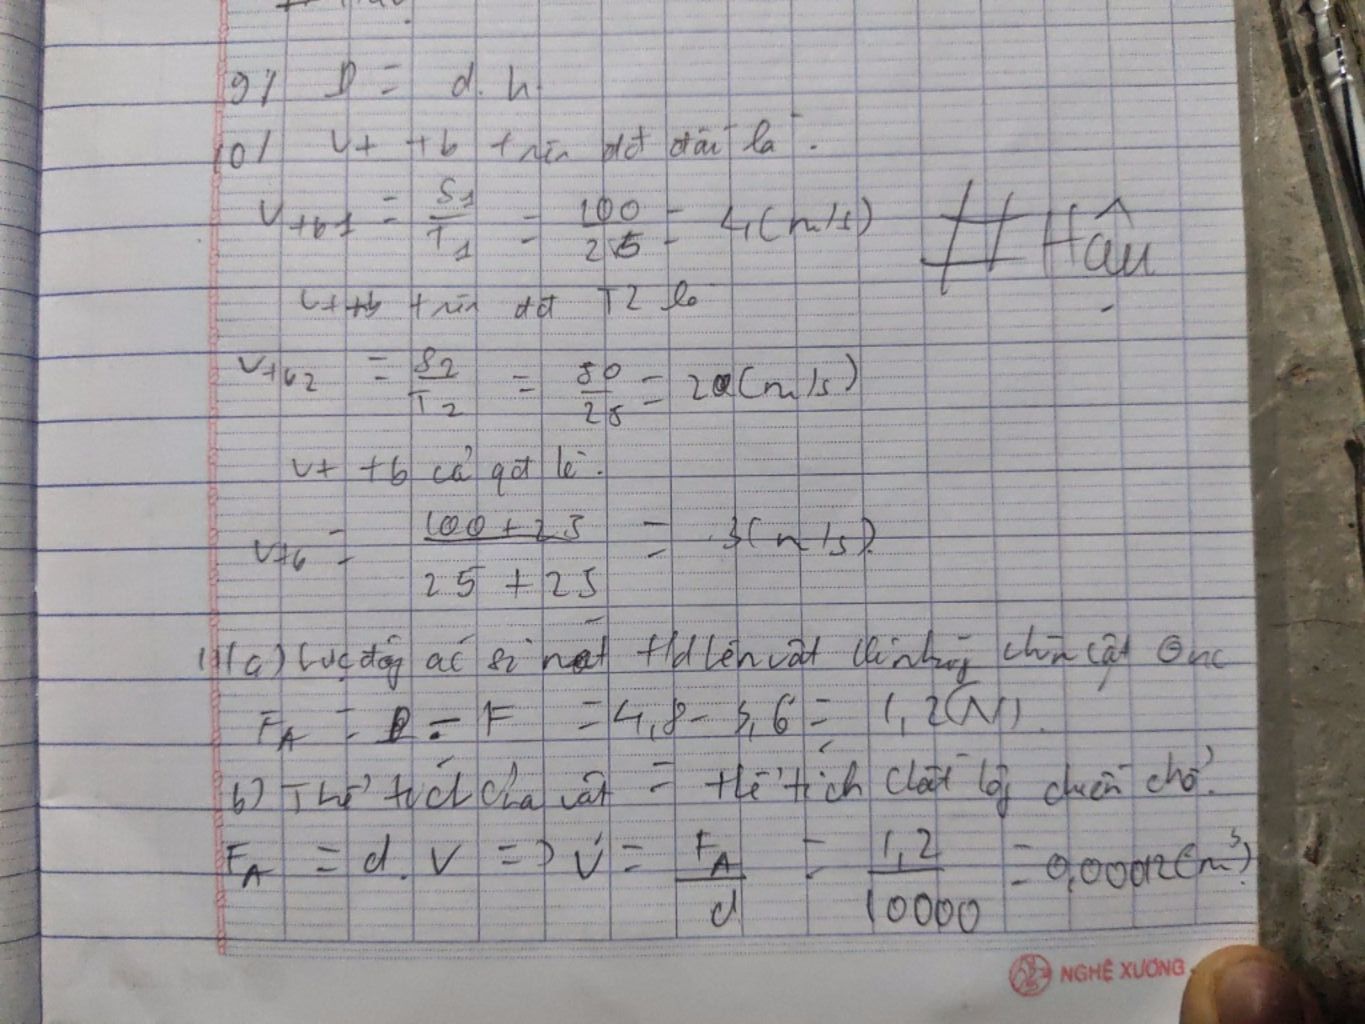 9/ P = d.h
10/ Vt tb trên đđ đầu là.
Vtb1 = S1/T1 = 100/25 = 4(m/s)
# Hậu
Vttb trên đđ T2 là
Vtb2 = S2/T2 = 50/25 = 2(m/s)
Vt tb cả qđ là.
Vtb = 100+25/25+25 = 3(m/s).
11/a) Lực đẩy ác si mét tđ lên vật khi nhúng chìm vật
FA = P - F = 4,8 - 3,6 = 1,2(N).
b) Thể tích của vật = thể tích chất lỏg chiến chỗ.
FA = d.V => V = FA/d = 1,2/10000 = 0,00012(m3).
NGHỆ XƯƠNG